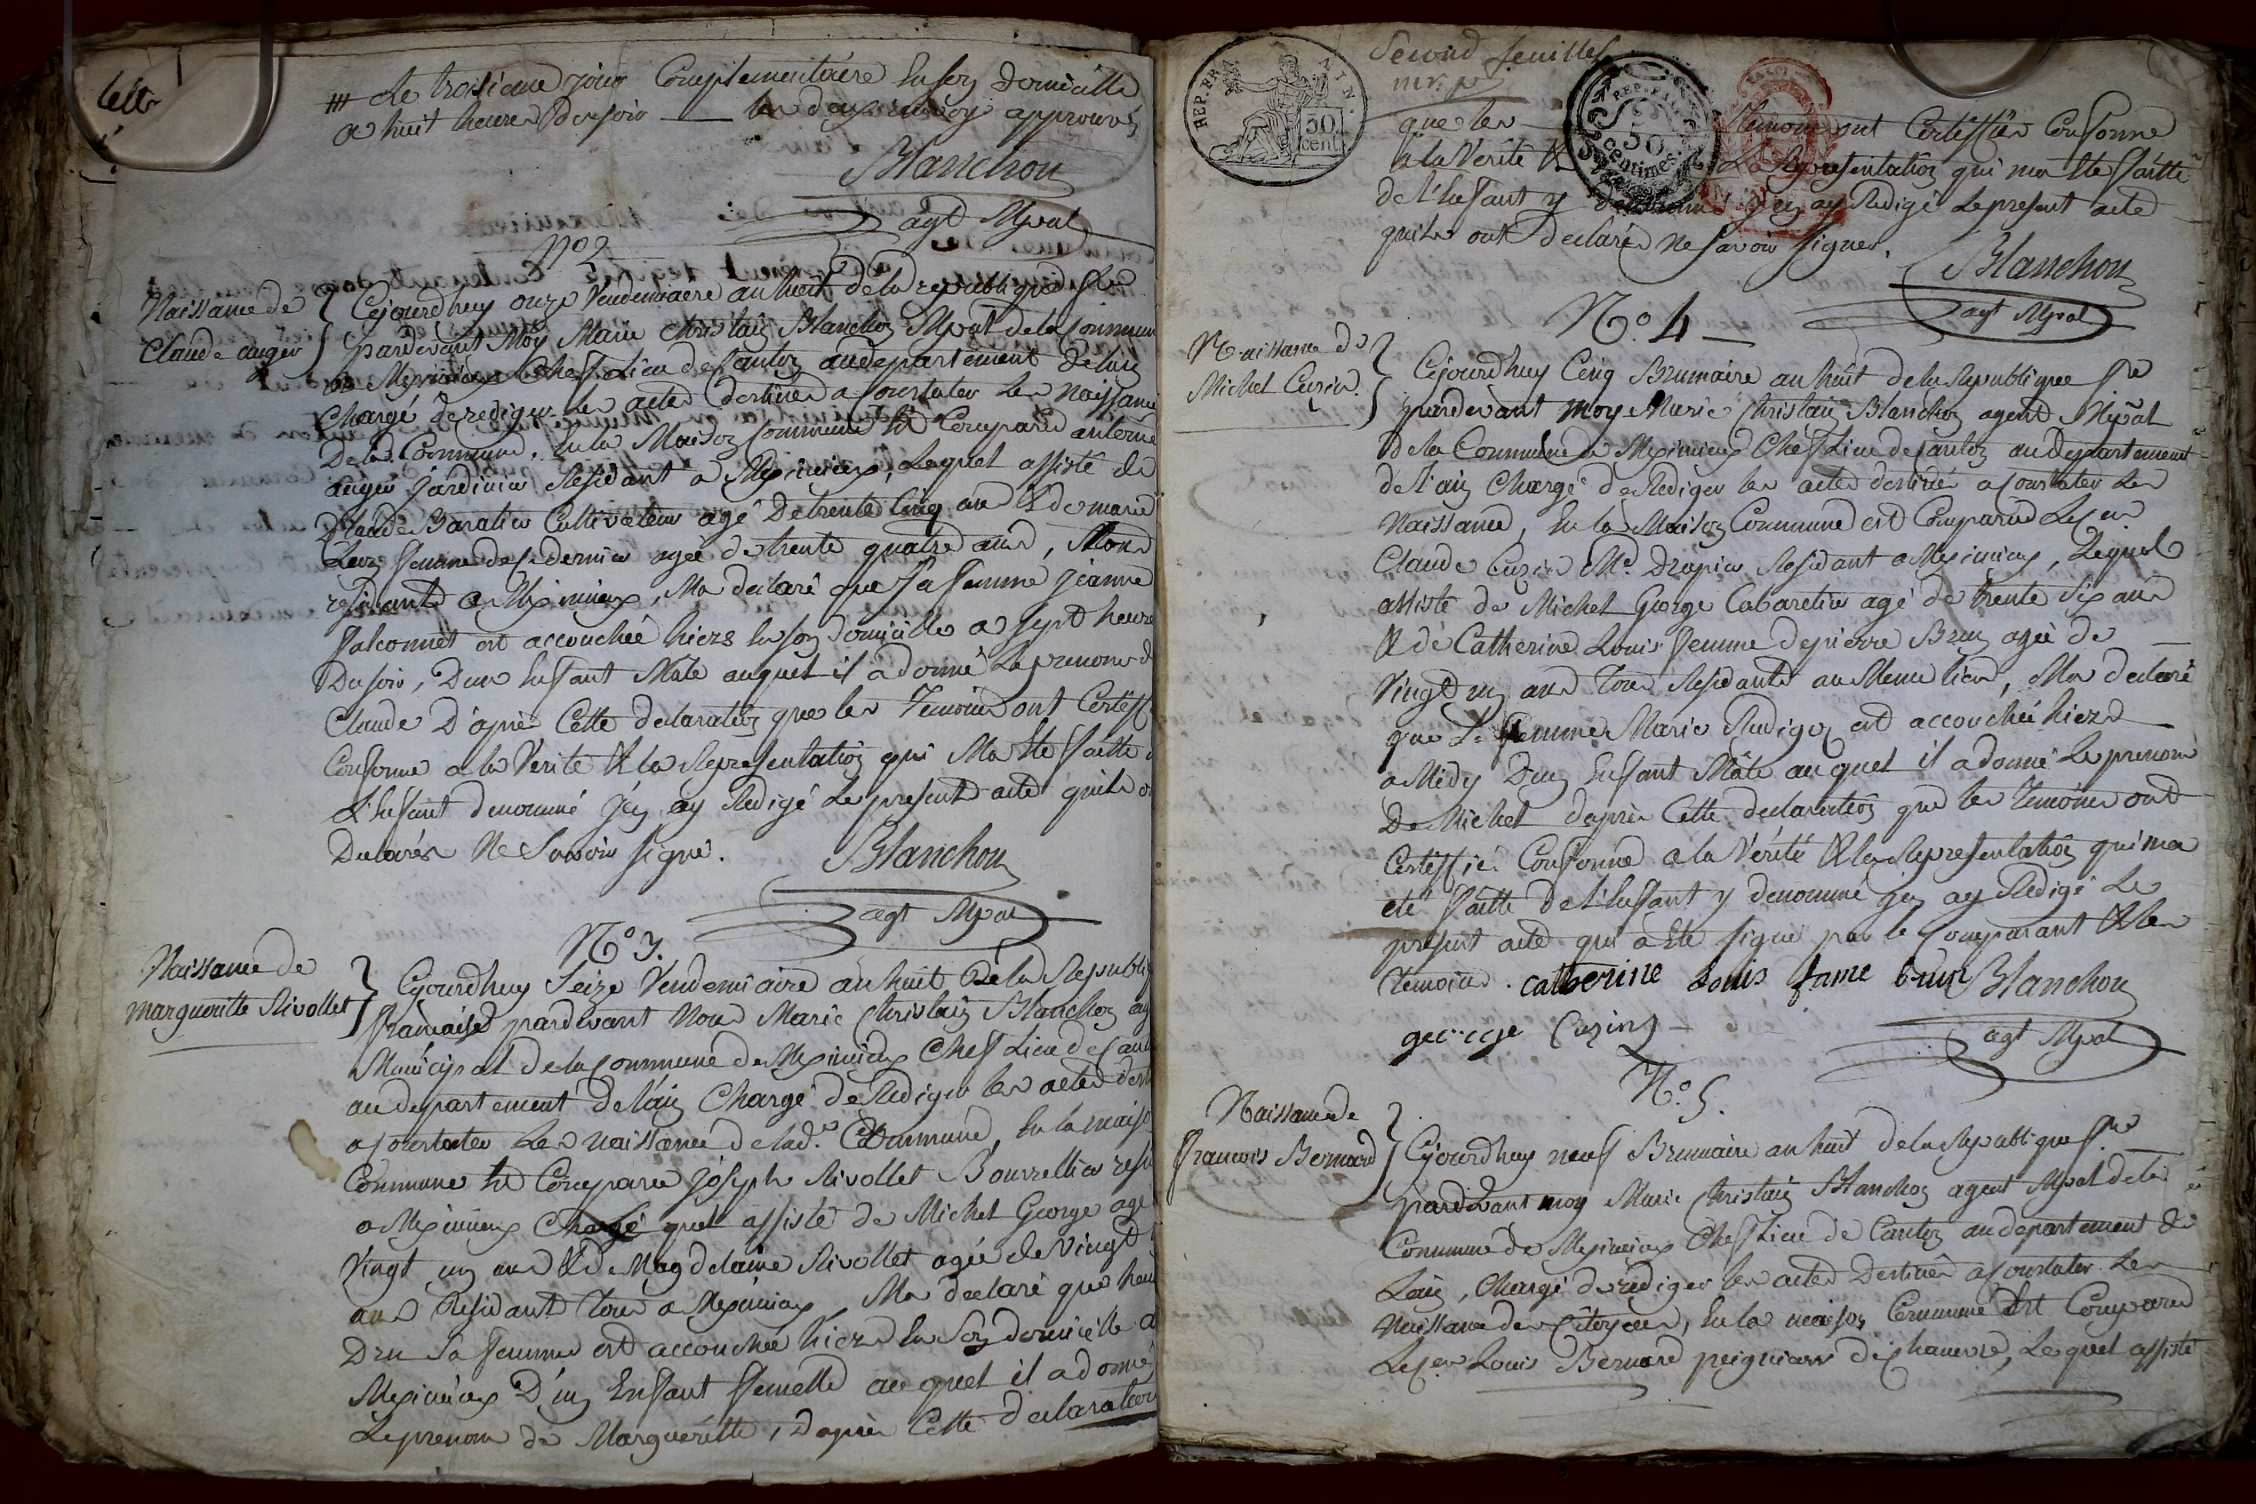 lettr
### Le troisieme jour Complementaire En son Domicille
a huit heures Du soir — les deux renvoy approuvés
Blanchon
agt Mpal
N° 2
Naissance de
Claude auger
Cejourdhuy onze Vendemiaire an huit de la republique fse
pardevant Moy Marie Christain Blanchon Mpal de la Commune
de Meximieux Chef Lieu de Canton au departement de Lain
Chargé de rediger les actes destinés a Constater Les Naissances
De la Commune. En la Maison Commune Et Comparu antoine
auger jardinier Residant a Meximieux, Lequel assisté de
Claude Baratier Cultivateur agé De trente Cinq ans & de marie
femme de ce dernier agée de trente quatre ans, Tous
residants a Meximieux, Ma declaré que sa femme jeanne
falconnet est accouchée hiers En son domicille a sept heures
Du soir, D'un Enfant Male auquel il a donné Le prenom d
Claude D'après Cette declaration que les Temoins ont Certiff
Conforme a la Verité & la Representation qui Ma Eté faitte d
L'Enfant denommé j'en ay Redigé Le present acte quils o
Declarés Ne Savoir signé.
Blanchon
agt Mpal
N° 3.
Naissance de
margueritte Rivollet
Cejourdhuy Seize Vendemiaire an huit De la Republiq
francaise pardevant Nous Marie Christain Blanchon ag
Municipal de la Commune de Meximieux Chef Lieu de Cant
au departement de l'ain Chargé de Rediger les actes dest
a Constater Les Naissances de lad.e Commune, En la maiso
Commune Et Comparu joseph Rivollet Bourrellier resid
a Meximieux quel assisté de Michel George age
Vingt un ans & de Magdelaine Rivollet agée de Vingt
ans Residant Tous a Meximieux, Ma declaré que
Dru Sa femme est accouchée hiers En Son domicille a
Meximieux D'un Enfant femelle auquel il a donné
Le prenom de Margueritte, D'apres Cette declaration
Second feuillet
REP. FRA. 50 cent.
REP. FRA. 50 centimes
que les Temoins ont Certiffiés Conforme
a la Verité & La Representation qui ma Eté faitte
de l'Enfant y denommé j'en ay Redigé Le present acte
quils ont declarés Ne Savoir signer.
Blanchon
agt Mpal
N°. 4
Naissance de
Michel Cuzin.
Cejourdhuy Cinq Brumaire an huit de la Republique fse
pardevant moy Marie Christain Blanchon agent Mpal
de la Commune de Meximieux Chef Lieu de Canton au Departement
de l'ain Chargé de Rediger les actes destinés a Constater Les
Naissances, En la Maison Commune est Comparu Le Cen
Claude Cuzin Md. Drapier Residant a Meximieux, Lequel
assisté de Michel George Cabaretier agé de trente Six ans
& de Catherine Louis femme de pierre Brun agée de
Vingt un ans Tous Residants au Meme lieu, Ma declaré
que Sa femme Marie Rudigoz est accouchée hiers
a Midy D'un Enfant Mâle auquel il a donné Le prenom
De Michel daprès Cette declaration que les Temoins ont
Certiffié Conforme a la Vérité & la Representation qui ma
eté faitte de L'Enfant y denommé j'en ay Redigé Le
present acte qui a Eté signé par le Comparant & les
Temoins. catherine Louis fame brun Blanchon
george Cuzin
agt Mpal
N°. 5.
Naissance de
francois Bernard
Cejourdhuy neuf Brumaire an huit de la Republique fse
pardevant moy Marie Christain Blanchon agent Mpal de la
Commune de Meximieux Chef Lieu de Canton au departement de
Lain, Chargé de rediger les actes Destinés a Constater Les
Naissance des Citoyens, En la maison Commune Est Comparu
Le Cen Louis Bernard peigneur de chanvre, Lequel assisté